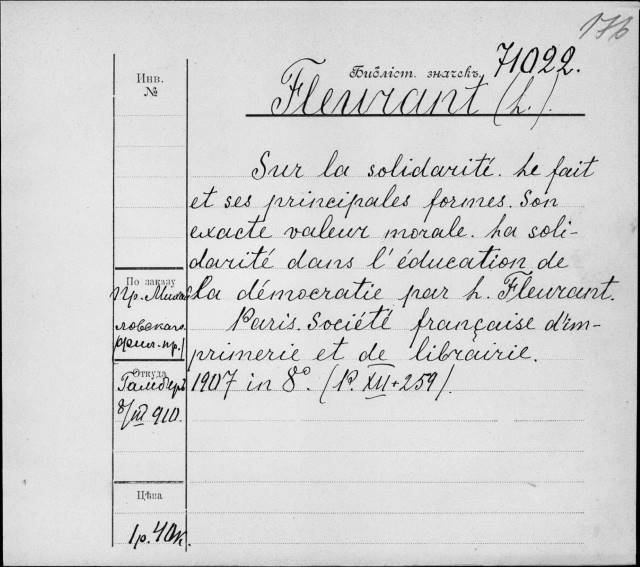 176
Библіст. значекъ 71022.
Fleurant (L.).
Инв.
№
Sur la solidarité. Le fait
et ses principales formes. Son
exacte valeur morale. La soli-
darité dans l'éducation de
la démocratie par L. Fleurant.
Paris. Société française d'im-
primerie et de librairie.
1907 in 8°. (P. XII + 259).
По заказу
Пр. Михай
ловскаго
Откуда
8/III 910.
Цѣна
1 р. 40 к.